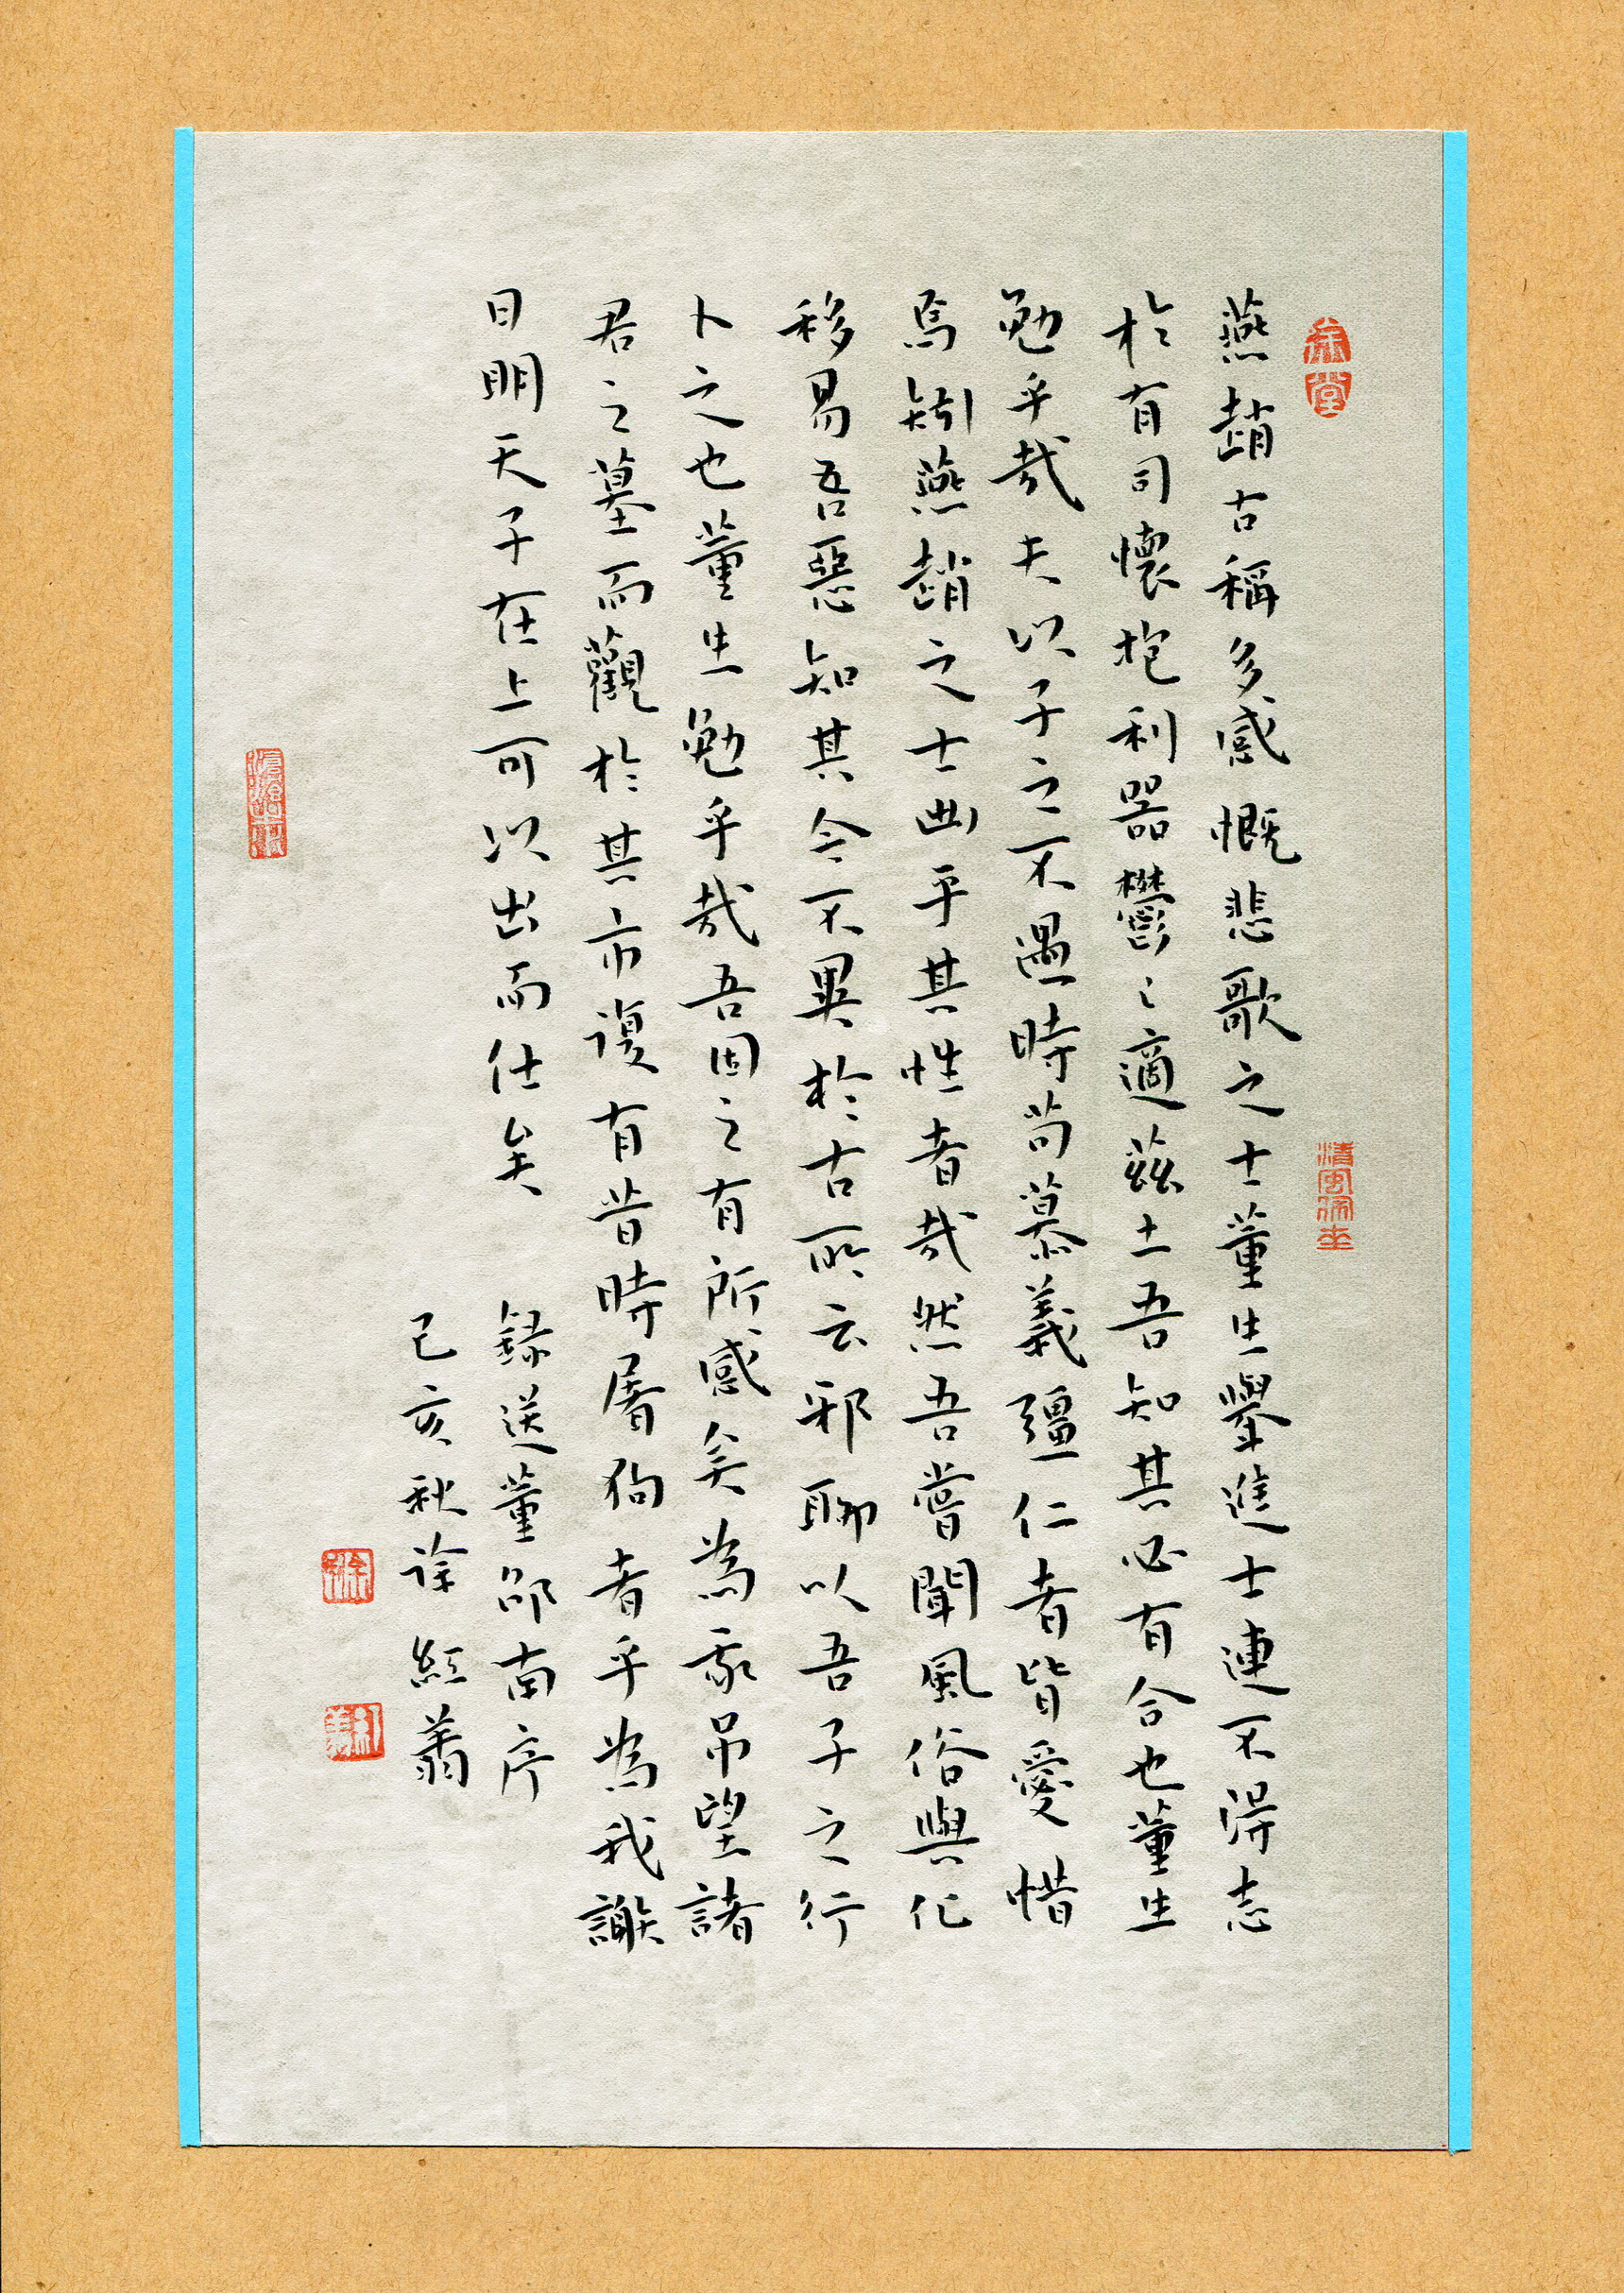 燕趙古稱多感慨悲歌之士董生舉進士連不得志
於有司懷抱利器鬱〻適茲土吾知其必有合也董生
勉乎哉夫以子之不遇時苟慕義彊仁者皆愛惜
焉矧燕趙之士出乎其性者哉然吾嘗聞風俗與化
移易吾惡知其今不異於古所云邪聊以吾子之行
卜之也董生勉乎哉吾因之有所感矣為我吊望諸
君之墓而觀於其市復有昔時屠狗者乎為我謝
曰明天子在上可以出而仕矣
錄送董邵南序
己亥秋徐紅
清風徐來
徐